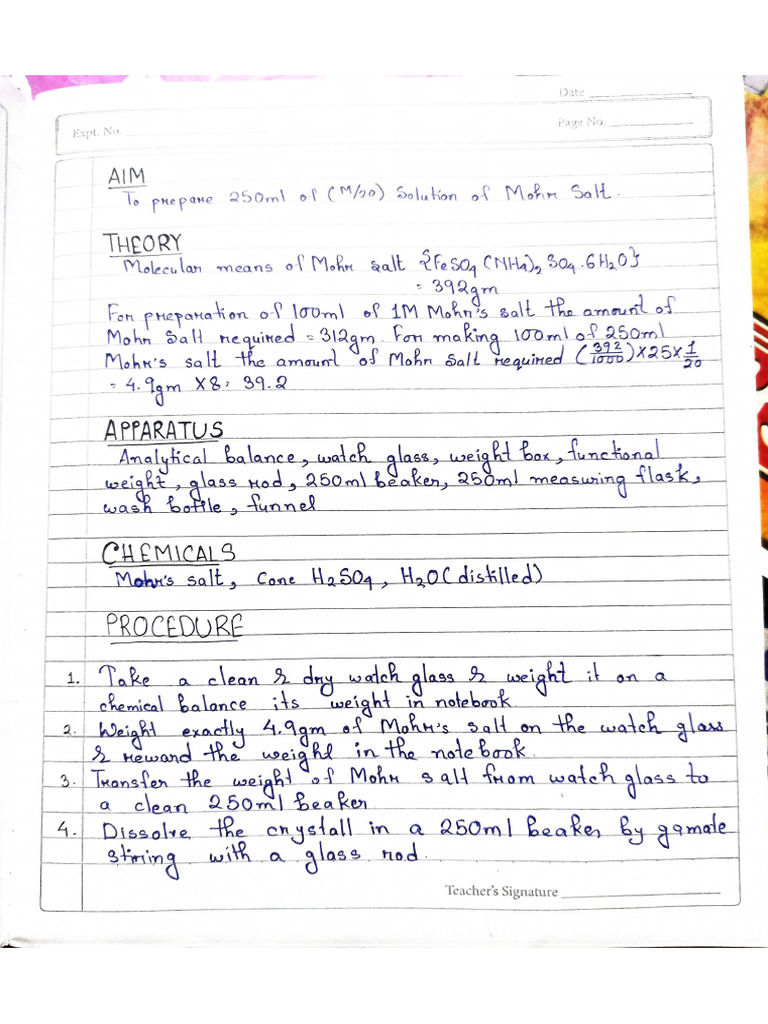 Date
Expt. No.
Page No.
AIM
To prepare 250ml of (M/20) Solution of Mohr Salt.
THEORY
Molecular means of Mohr salt {FeSO4 (NH4)2 SO4 .6H2O}
= 392gm
For preparation of 100ml of 1M Mohr's salt the amount of
Mohr Salt required = 312gm. For making 100ml of 250ml
Mohr's salt the amount of Mohr Salt required (392/1000)×25×1/20
= 4.9gm X8: 39.2
APPARATUS
Analytical balance, watch glass, weight box, functional
weight, glass rod, 250ml beaker, 250ml measuring flask,
wash bottle, funnel
CHEMICALS
Mohr's salt, Conc H2SO4, H2O (distilled)
PROCEDURE
1. Take a clean & dry watch glass & weight it on a
chemical balance its weight in notebook.
2. Weight exactly 4.9gm of Mohr's salt on the watch glass
& reward the weight in the notebook.
3. Transfer the weight of Mohr salt from watch glass to
a clean 250ml beaker
4. Dissolve the crystall in a 250ml beaker by
stiring with a glass rod.
Teacher's Signature